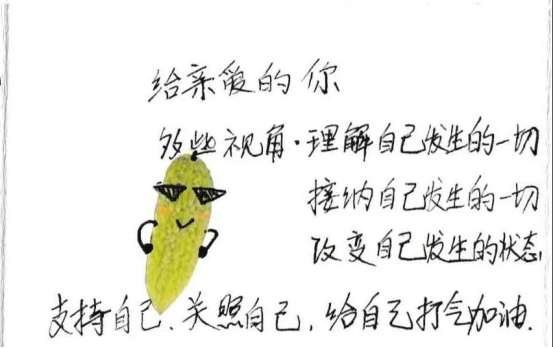 给亲爱的你
多些视角·理解自己发生的一切
接纳自己发生的一切
改变自己发生的状态,
支持自己、关照自己,给自己打气加油.